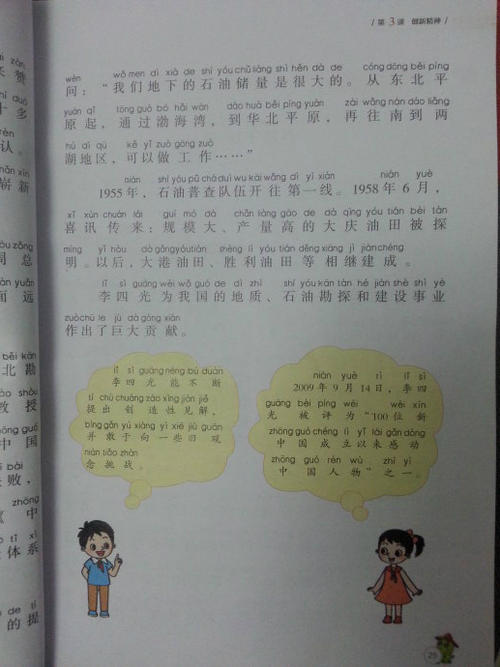 第3课 创新精神
wèn wǒ men dì xià de shí yóu chǔ liàng shì hěn dà de cóng dōng běi píng
问：“我们地下的石油储量是很大的。从东北平
yuán qǐ tōng guò bó hǎi wān dào huá běi píng yuán zài wǎng nán dào liǎng
原起，通过渤海湾，到华北平原，再往南到两
hú dì qū kě yǐ zuò gōng zuò
湖地区，可以做工作……”
nián shí yóu pǔ chá duì wu kāi wǎng dì yī xiàn nián yuè
1955年，石油普查队伍开往第一线。1958年6月，
xǐ xùn chuán lái guī mó dà chǎn liàng gāo de dà qìng yóu tián bèi tàn
喜讯传来：规模大、产量高的大庆油田被探
míng yǐ hòu dà gǎng yóu tián shèng lì yóu tián děng xiāng jì jiàn chéng
明。以后，大港油田、胜利油田等相继建成。
lǐ sì guāng wèi wǒ guó de dì zhì shí yóu kān tàn hé jiàn shè shì yè
李四光为我国的地质、石油勘探和建设事业
zuò chū le jù dà gòng xiàn
作出了巨大贡献。
lǐ sì guāng néng bú duàn
李四光能不断
tí chū chuàng zào xìng jiàn jiě
提出创造性见解，
bìng gǎn yú xiàng yì xiē jiù guān
并敢于向一些旧观
niàn tiǎo zhàn
念挑战。
nián yuè rì lǐ sì
2009年9月14日，李四
guāng bèi píng wéi wèi xīn
光被评为“100位新
zhōng guó chéng lì yǐ lái gǎn dòng
中国成立以来感动
zhōng guó rén wù zhī yī
中国人物”之一。
25